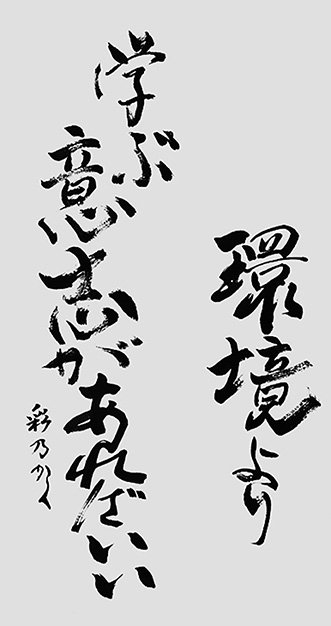 環境より
学ぶ
意志があればいい
彩乃かく